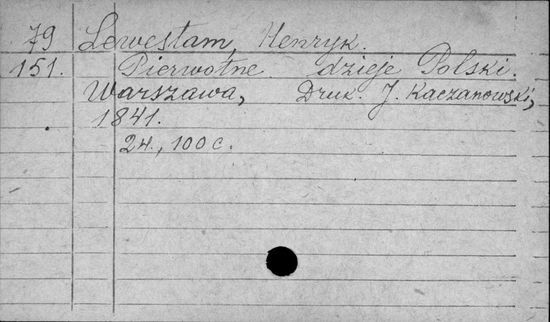 79 Lewestam, Henryk.
151. Pierwotne dzieje Polski.
Warszawa, Druk. J. Kaczanowski,
1841.
24., 100 c.